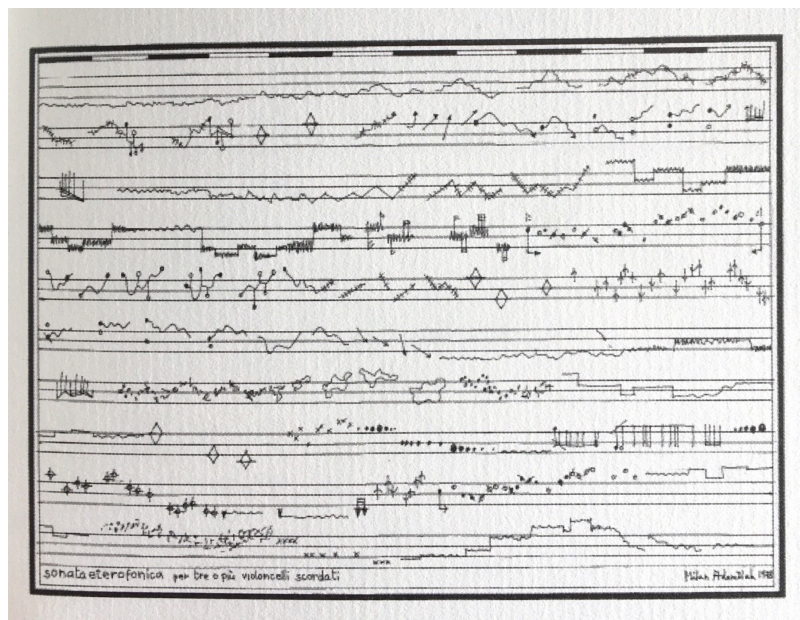 sonata eterofonica per tre o più violoncelli scordati
Milan Adamčiak 1978